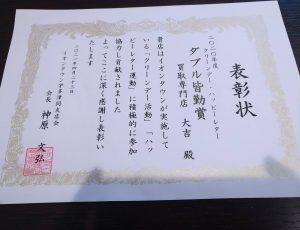 表彰状
二〇二〇年度
クリーンデー・ハッピーレター
ダブル皆勤賞
買取専門店 大吉 殿
貴店はイオンタウンが実施して
いる「クリーンデー活動」「ハッ
ピーレター運動」に積極的に参加
協力し貢献されました
よってここに深く感謝し表彰い
たします
二〇二一年四月二十三日
イオンタウン宇多津同友店会
会長 神原 文弘